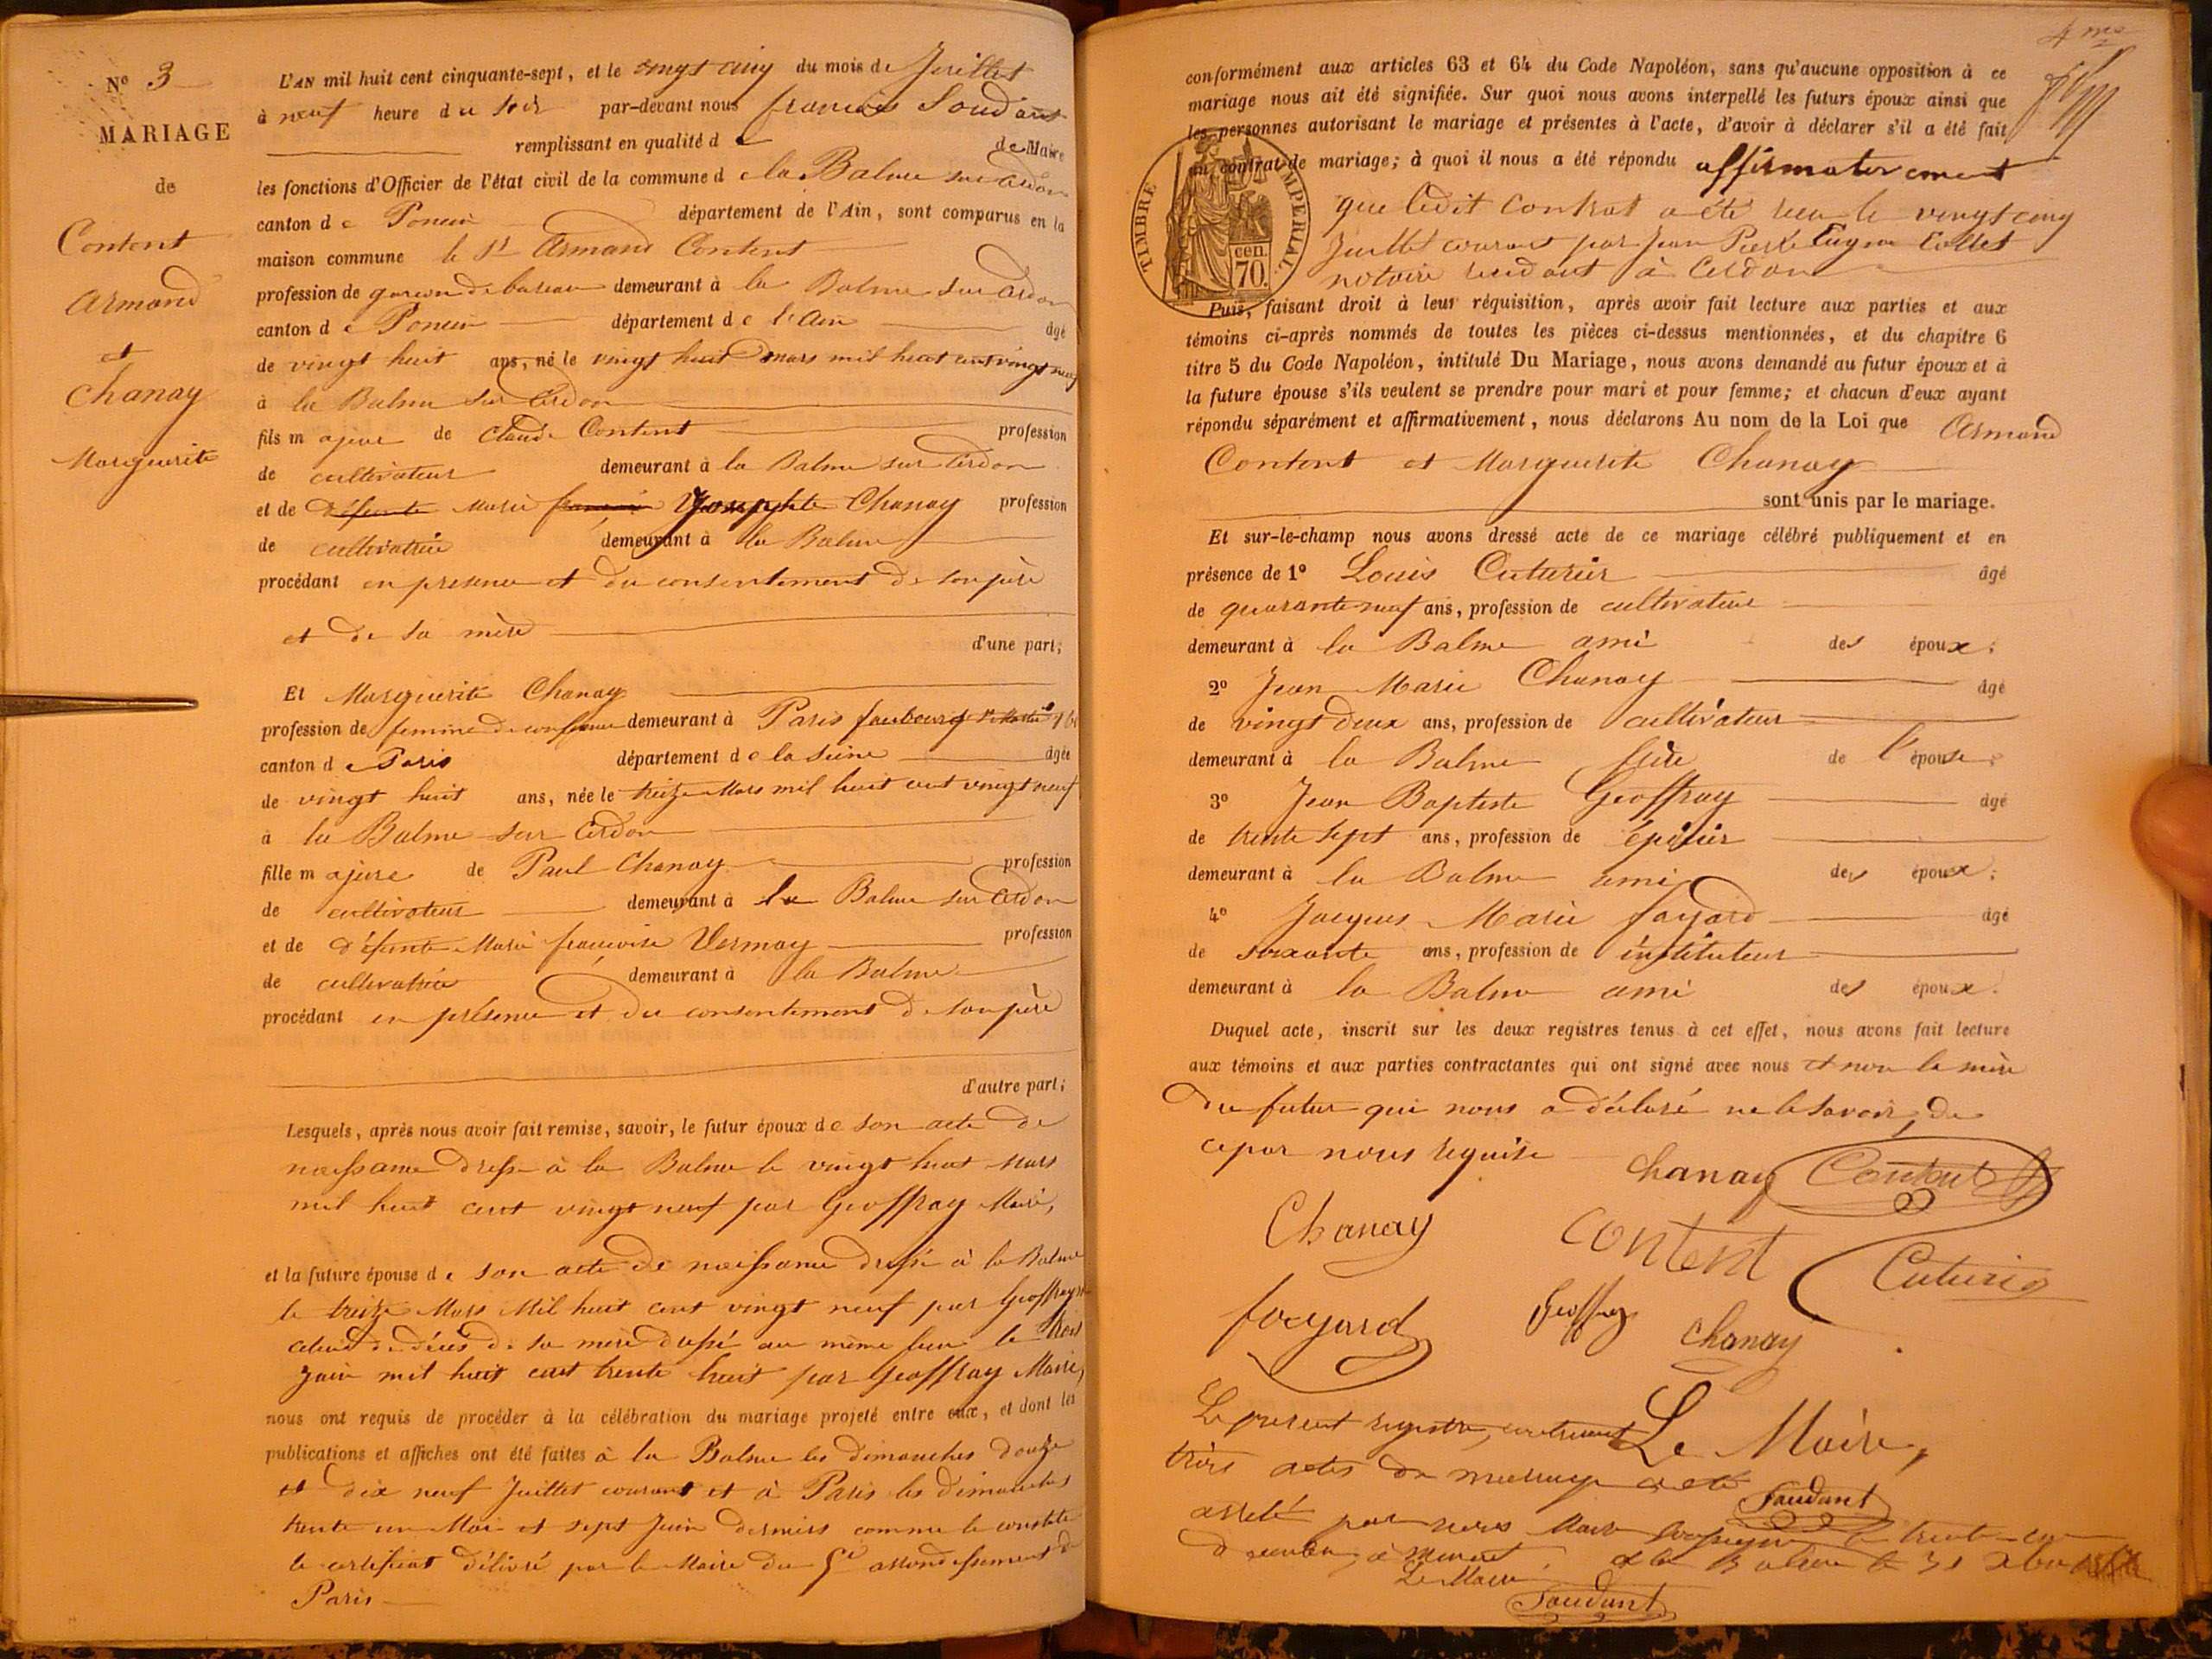 N° 3
MARIAGE
de
Content
Armand
et
Chanay
Marguerite
L'AN mil huit cent cinquante-sept, et le vingt cinq du mois de Juillet
à neuf heure du soir par-devant nous francois Soudant
remplissant en qualité de de Maire
les fonctions d'Officier de l'état civil de la commune de la Balme sur Cerdon
canton de Poncin département de l'Ain, sont comparus en la
maison commune le Sr Armand Content
profession de garcon de bureau demeurant à la Balme sur Cerdon
canton de Poncin département de l'Ain âgé
de vingt huit ans, né le vingt huit mars mil huit cent vingt neuf
à la Balme sur Cerdon
fils majeur de Claude Content profession
de cultivateur demeurant à la Balme sur Cerdon
et de défunte Marie francoise Josephte Chanay profession
de cultivatrice demeurant à la Balme
procédant en presence et du consentement de son père
et de sa mère
d'une part;
Et Marguerite Chanay
profession de femme de confiance demeurant à Paris faubourg St Martin
canton de Paris département de la Seine âgée
de vingt huit ans, née le treize Mars mil huit cent vingt neuf
à la Balme sur Cerdon
fille majeure de Paul Chanay profession
de cultivateur demeurant à la Balme sur Cerdon
et de défunte Marie francoise Vermay profession
de cultivatrice demeurant à la Balme
procédant en présence et du consentement de son père
d'autre part;
Lesquels, après nous avoir fait remise, savoir, le futur époux de son acte de
naissance dressé à la Balme le vingt huit Mars
mil huit cent vingt neuf par Geoffray Maire,
et la future épouse de son acte de naissance dressé à la Balme
le treize Mars Mil huit cent vingt neuf par Geoffray
celui de décès de sa mère dressé au même lieu le trois
Juin mil huit cent trente huit par Geoffray Maire,
nous ont requis de procéder à la célébration du mariage projeté entre eux, et dont les
publications et affiches ont été faites à la Balme les dimanches douze
et dix neuf Juillet courant et à Paris les dimanches
trente un Mai et sept Juin derniers comme le constate
le certificat délivré par le Maire du 5e arrondissement de
Paris
4me
conformément aux articles 63 et 64 du Code Napoléon, sans qu'aucune opposition à ce
mariage nous ait été signifiée. Sur quoi nous avons interpellé les futurs époux ainsi que
les personnes autorisant le mariage et présentes à l'acte, d'avoir à déclarer s'il a été fait
un contrat de mariage; à quoi il nous a été répondu affirmativement
TIMBRE IMPERIAL.
cen.
70.
que ledit contrat a été reçu le vingt cinq
Juillet courant par Jean Pierre Eugène Collet
notaire résidant à Cerdon
Puis, faisant droit à leur réquisition, après avoir fait lecture aux parties et aux
témoins ci-après nommés de toutes les pièces ci-dessus mentionnées, et du chapitre 6
titre 5 du Code Napoléon, intitulé Du Mariage, nous avons demandé au futur époux et à
la future épouse s'ils veulent se prendre pour mari et pour femme; et chacun d'eux ayant
répondu séparément et affirmativement, nous déclarons Au nom de la Loi que Armand
Content et Marguerite Chanay
sont unis par le mariage.
Et sur-le-champ nous avons dressé acte de ce mariage célébré publiquement et en
présence de 1° Louis Cuturier âgé
de quarante neuf ans, profession de cultivateur
demeurant à la Balme ami des époux;
2° Jean Marie Chanay âgé
de vingt deux ans, profession de cultivateur
demeurant à la Balme frère de l'épouse;
3° Jean Baptiste Geoffray âgé
de trente sept ans, profession de épicier
demeurant à la Balme ami des époux;
4° Jacques Marie fayard âgé
de soixante ans, profession de instituteur
demeurant à la Balme ami des époux.
Duquel acte, inscrit sur les deux registres tenus à cet effet, nous avons fait lecture
aux témoins et aux parties contractantes qui ont signé avec nous et non la mère
du futur qui nous a déclaré ne le savoir, de
ce par nous requise
Chanay Content
Chanay Content Cuturier
fayard Geoffray Chanay
Le present registre, contenant Le Maire,
trois actes de mariage a été
Soudant
arreté par nous Maire soussigné le trente-un
décembre, à minuit. A la Balme le 31 Xbre
Le Maire
Soudant